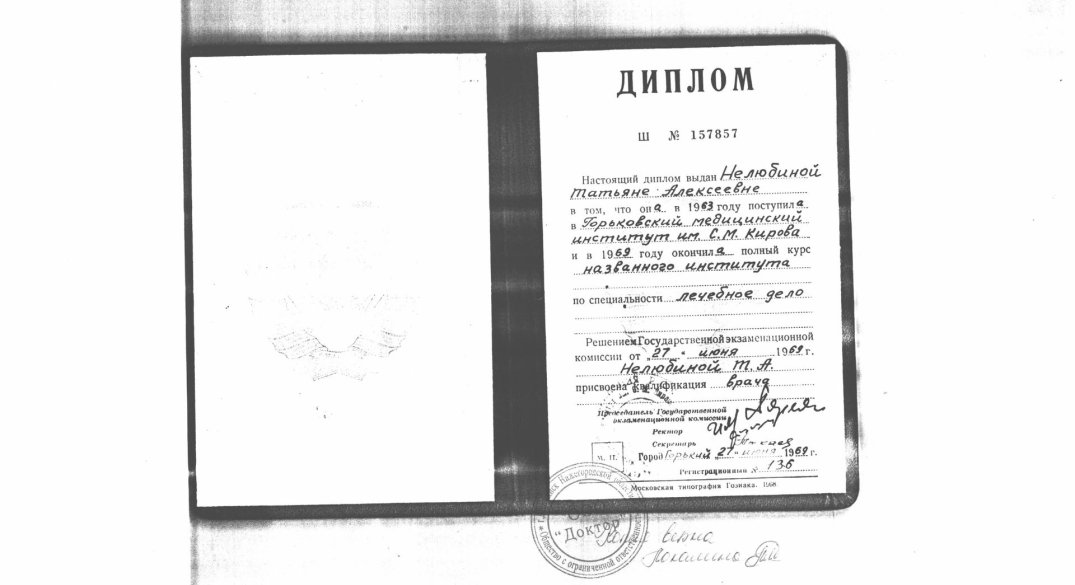 ДИПЛОМ
Ш № 157857
Настоящий диплом выдан Нелюбиной
Татьяне Алексеевне
в том, что она в 1963 году поступила
в Горьковский медицинский
институт им. С. М. Кирова
и в 1969 году окончила полный курс
названного института
по специальности лечебное дело
Решением Государственной экзаменационной
комиссии от „27 “ июня 1969 г.
Нелюбиной Т. А.
присвоена квалификация врача
Председатель Государственной
экзаменационной комиссии
Ректор
Секретарь
М. П. Город Горький „27 “ июня 1969 г.
Регистрационный № 136
Московская типография Гознака. 1968.
Нижегородской
"Доктор"
* Общество с ограниченной ответственностью
верна